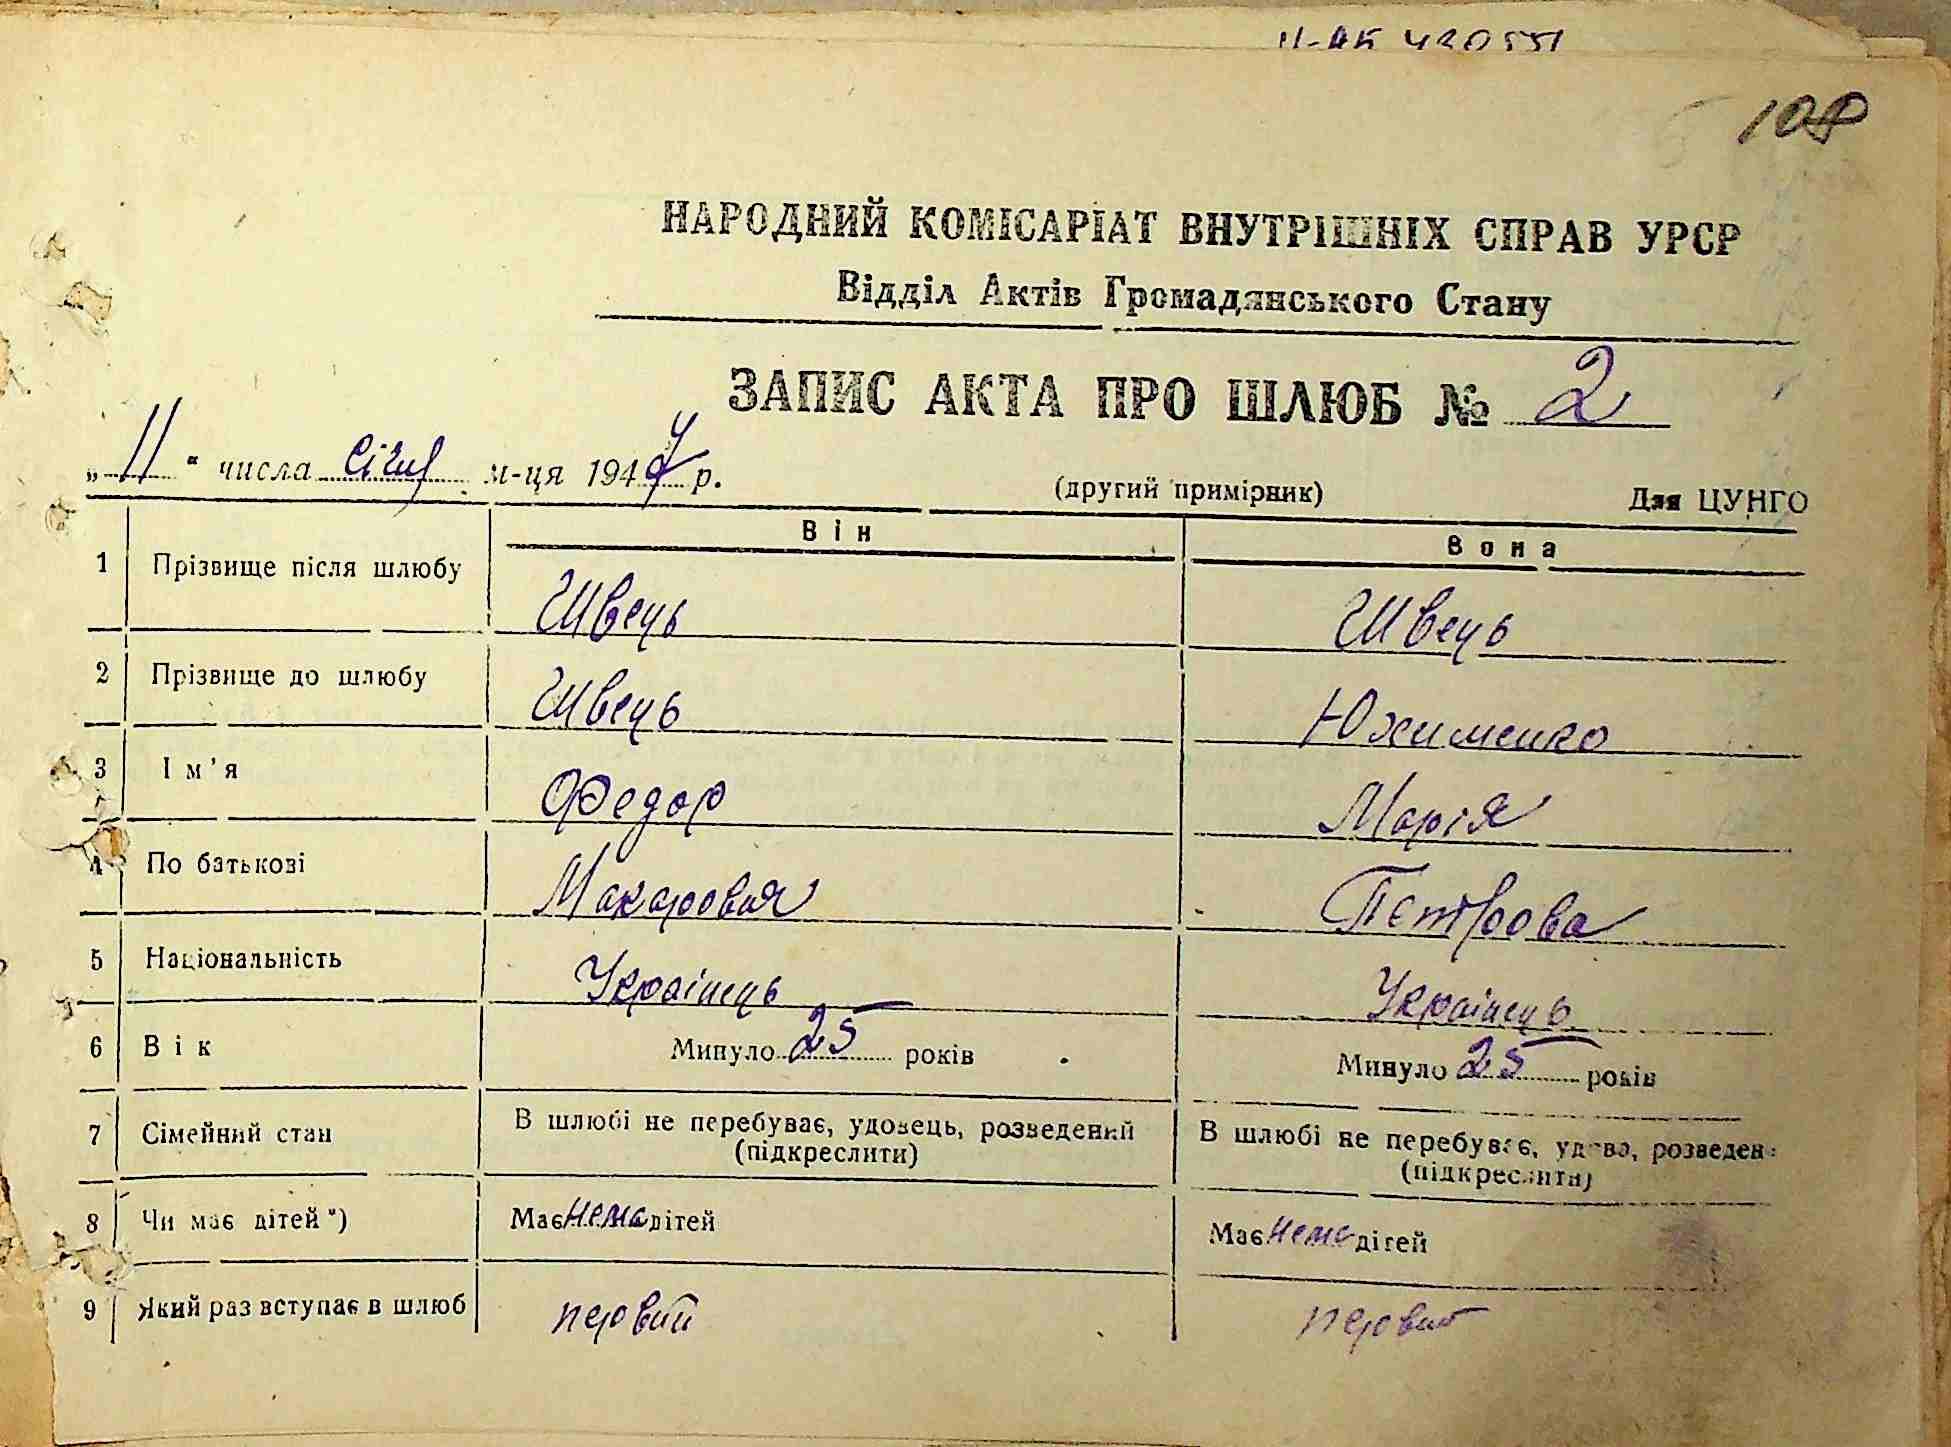 ІІ-АК 430551
108
НАРОДНИЙ КОМІСАРІАТ ВНУТРІШНІХ СПРАВ УРСР
Відділ Актів Громадянського Стану
ЗАПИС АКТА ПРО ШЛЮБ № 2
„ 11 “ числа січня м-ця 1947 р.
(другий примірник) Для ЦУНГО
Він Вона
1 Прізвище після шлюбу Швець Швець
2 Прізвище до шлюбу Швець Юхименко
3 Ім'я Федор Марія
4 По батькові Макарович Петрова
5 Національність Українець Українець
6 Вік Минуло 25 років Минуло 25 років
7 Сімейний стан В шлюбі не перебуває, удовець, розведений В шлюбі не перебуває, удова, розведен
(підкреслити) (підкреслити)
8 Чи має дітей*) Має нема дітей Має нема дітей
9 Який раз вступає в шлюб первий первий